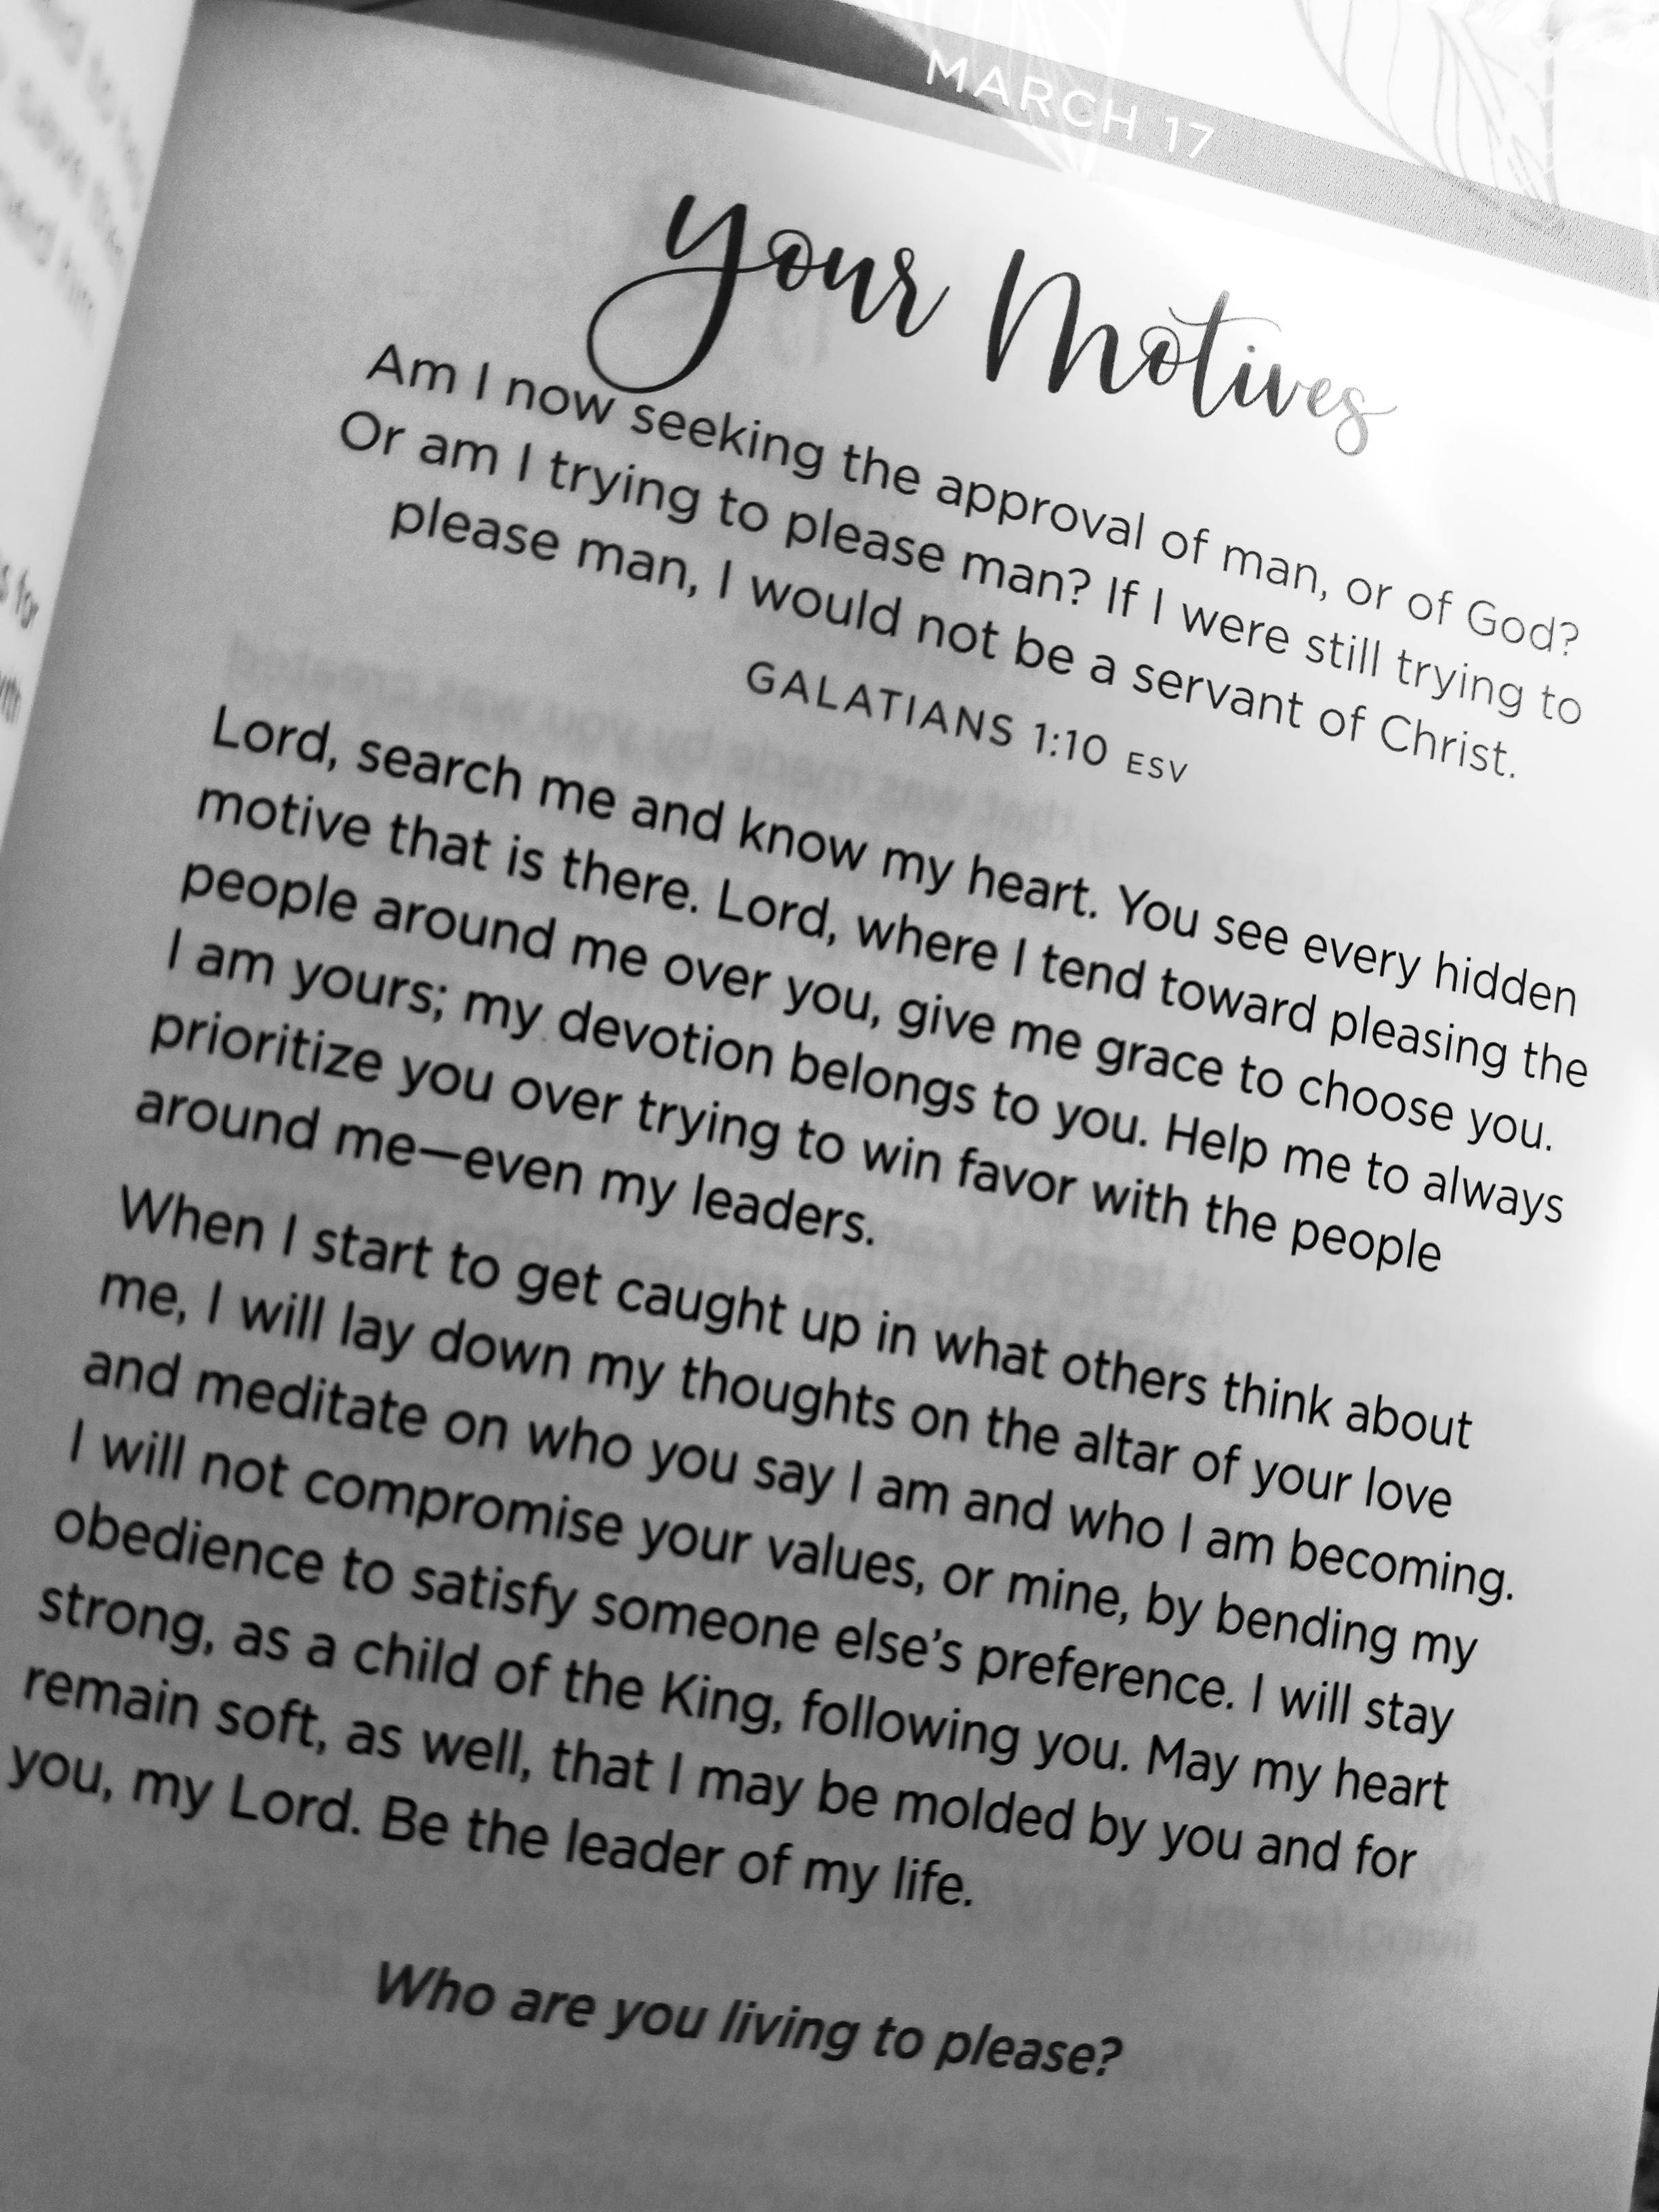 MARCH 17
your Motives
Am I now seeking the approval of man, or of God?
Or am I trying to please man? If I were still trying to
please man, I would not be a servant of Christ.
GALATIANS 1:10 ESV
Lord, search me and know my heart. You see every hidden
motive that is there. Lord, where I tend toward pleasing the
people around me over you, give me grace to choose you.
I am yours; my devotion belongs to you. Help me to always
prioritize you over trying to win favor with the people
around me—even my leaders.
When I start to get caught up in what others think about
me, I will lay down my thoughts on the altar of your love
and meditate on who you say I am and who I am becoming.
I will not compromise your values, or mine, by bending my
obedience to satisfy someone else’s preference. I will stay
strong, as a child of the King, following you. May my heart
remain soft, as well, that I may be molded by you and for
you, my Lord. Be the leader of my life.
Who are you living to please?